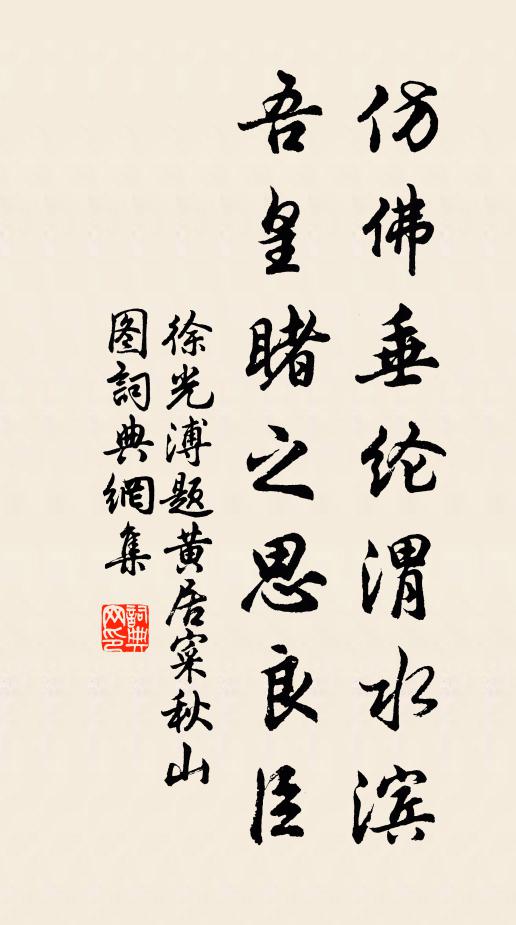 仿佛垂纶渭水滨
吾皇睹之思良臣
徐光溥题黄居寀秋山
图詞典網集
詞典
网印